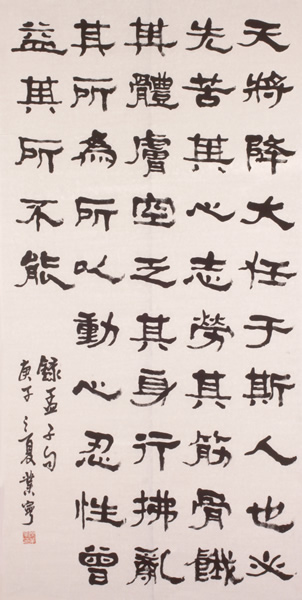 天將降大任于斯人也必
先苦其心志勞其筋骨餓
其體膚空乏其身行拂亂
其所為所以動心忍性曾
益其所不能
錄孟子句
庚子之夏